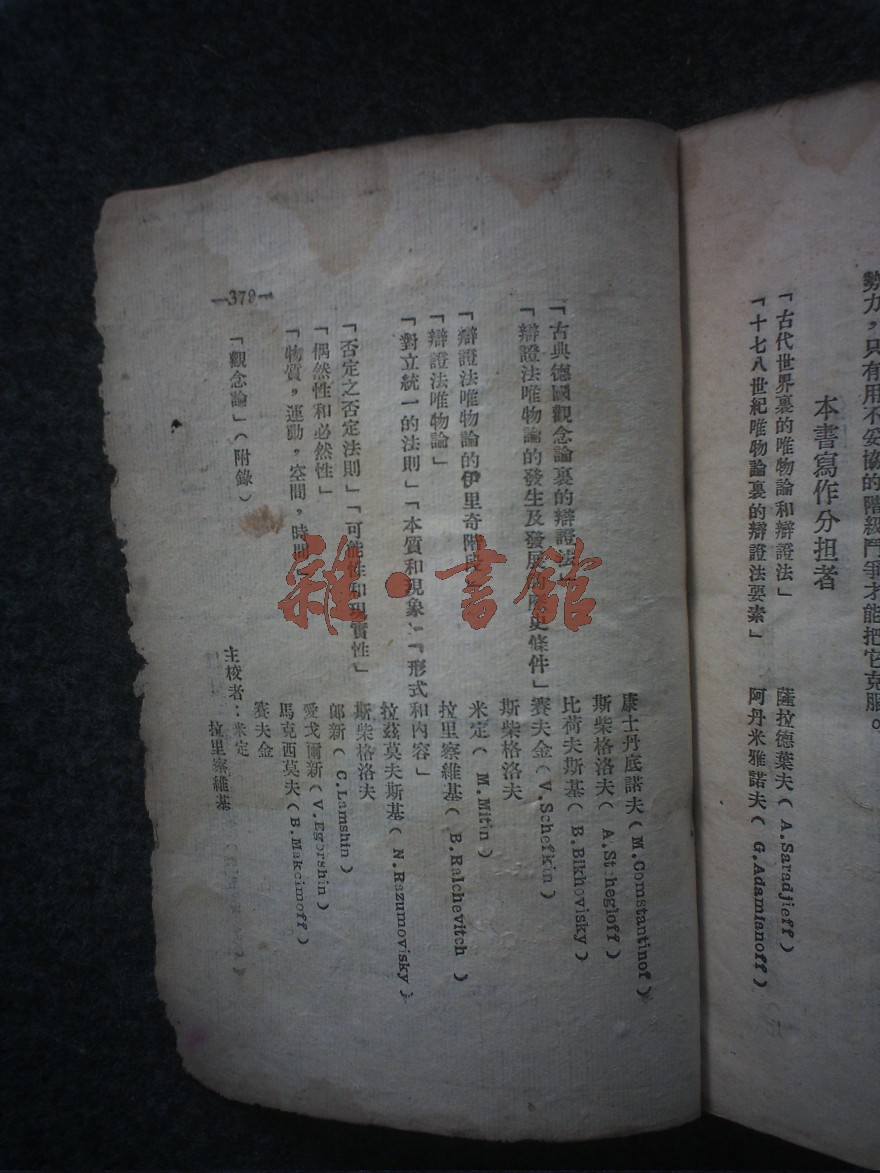 勢力，只有用不妥協的階級鬥爭才能把它克服。
本書寫作分担者
「古代世界裏的唯物論和辯證法」 薩拉德葉夫（A.Saradjieff）
「十七八世紀唯物論裏的辯證法要素」 阿丹米雅諾夫（G.Adamianoff）
康士丹底諾夫（M.Comstantinof）
斯柴格洛夫（A.Stchegloff）
「古典德國觀念論裏的辯證法」 比荷夫斯基（B.Blkhovisky）
「辯證法唯物論的發生及發展的歷史條件」賽夫金（V.Schefkin）
斯柴格洛夫
「辯證法唯物論的伊里奇階段」 米定（M.Mitin）
「辯證法唯物論」 拉里察維基（B.Ralchevitch）
「對立統一的法則」「本質和現象」「形式和內容」
拉茲莫夫斯基（N.Razumovisky）
「否定之否定法則」「可能性和現實性」 斯柴格洛夫
「偶然性和必然性」 郎新（C.Lamshin）
「物質，運動，空間，時間」 愛戈爾新（V.Egorshin）
馬克西莫夫（B.Makcimoff）
「觀念論」（附錄） 賽夫金
主校者：米定
拉里察維基
—379—
雜·書館